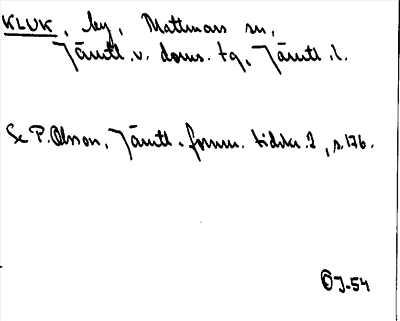 KLUK, by, Mattmars sn,
Jämtl. v. doms. tg, Jämtl. l.
Se P. Olsson, Jämtl. fornm. tidskr. 2, s. 176.
ÖJ-54